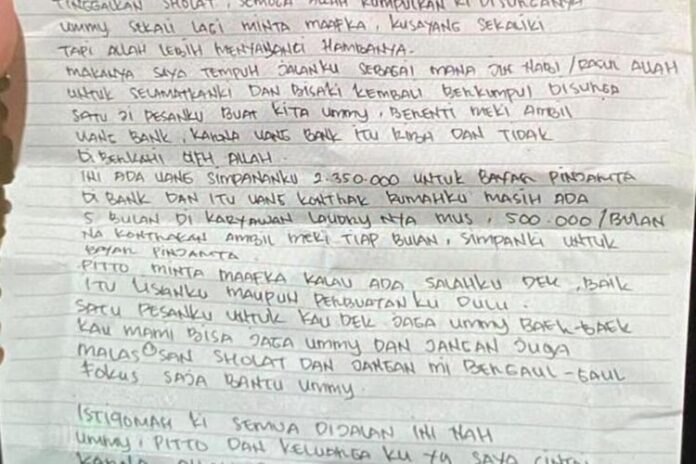 TINGGALKAN SHOLAT, SEMOGA ALLAH KUMPULKAN KI DISURGANYA
UMMY SEKALI LAGI MINTA MAAFKA, KUSAYANG SEKALIKI
TAPI ALLAH LEBIH MENYAYANGI HAMBANYA.
MAKANYA SAYA TEMPUH JALANKU SEBAGAI MANA JLK NABI / RASUL ALLAH
UNTUK SELAMATKANKI DAN BISAKI KEMBALI BERKUMPUL DISURGA
SATU JI PESANKU BUAT KITA UMMY, BERENTI MEKI AMBIL
UANG BANK, KARNA UANG BANK ITU RIBA DAN TIDAK
DI BERKAHI OLEH ALLAH.
INI ADA UANG SIMPANANKU 2.350.000 UNTUK BAYAR PINJAMTA
DI BANK DAN ITU UANG KONTRAK RUMAHKU MASIH ADA
5 BULAN DI KARYAWAN LAUNDRY NYA MUS, 500.000/BULAN
NA KONTRAKAN AMBIL MEKI TIAP BULAN, SIMPANKI UNTUK
BAYAR PINJAMTA.
PITTO MINTA MAAFKA KALAU ADA SALAHKU DEK, BAIK
ITU LISANKU MAUPUN PERBUATAN KU DULU.
SATU PESANKU UNTUK KAU DEK JAGA UMMY BAEK-BAEK
KAU MAMI BISA JAGA UMMY DAN JANGAN JUGA
MALAS SAN SHOLAT DAN JANGAN MI BERGAUL-GAUL
FOKUS SAJA BANTU UMMY.
ISTIQOMAH KI SEMUA DIJALAN INI NAH
UMMY, PITTO DAN KELUARGA KU YG SAYA CINTAI
KARNA